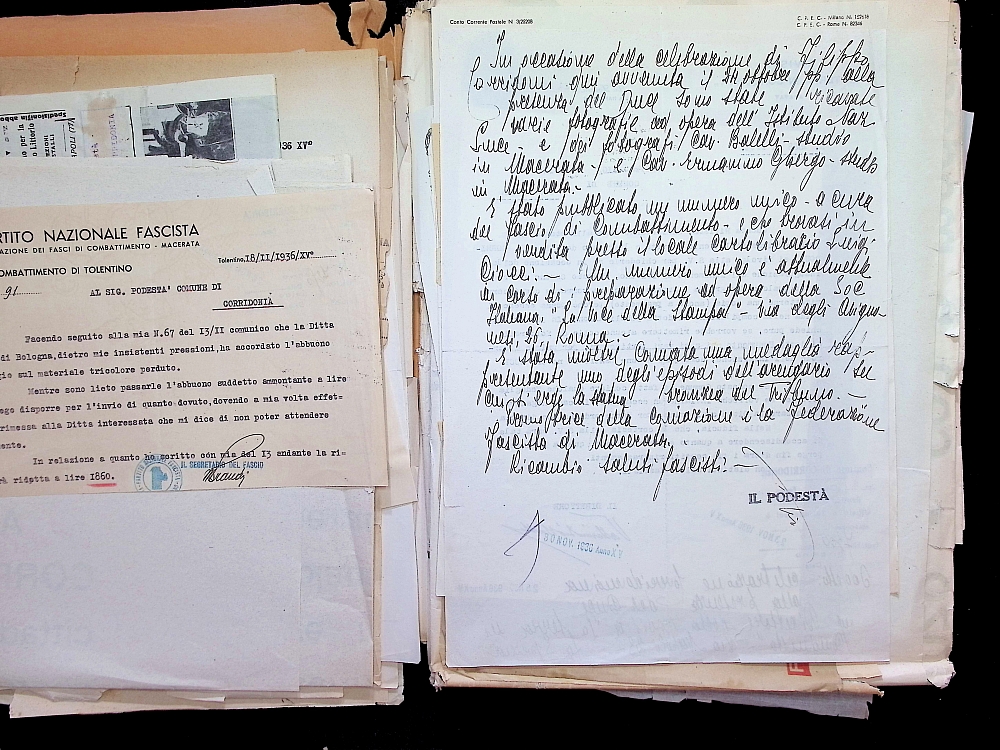 36 XVº
RTITO NAZIONALE FASCISTA
AZIONE DEI FASCI DI COMBATTIMENTO - MACERATA
COMBATTIMENTO DI TOLENTINO
Tolentino, 18/II/1936/XVº
91
AL SIG. PODESTA' COMUNE DI
CORRIDONIA
Facendo seguito alla mia N.67 del I3/II comunico che la Ditta
di Bologna,dietro mie insistenti pressioni,ha accordato l'abbuono
gio sul materiale tricolore perduto.
Mentre sono lieto passarle l'abbuono suddetto ammontante a lire
ego disporre per l'invio di quanto dovuto,dovendo a mia volta effet=
rimessa alla Ditta interessata che mi dice di non poter attendere
mente.
In relazione a quanto ho scritto con mia del I3 andante la ri=
rà ridotta a lire I860.
IL SEGRETARIO DEL FASCIO
Conto Corrente Postale N 3/20208
C. P. E. C. - Milano N. 157616
C. P. E. C. - Roma N. 82346
In occasione della celebrazione di Filippo
Corridoni qui avvenuta il 24 ottobre alla
presenza del Duce sono state ricavate
varie fotografie ad opera dell'Istituto Naz
Luce - e dei fotografi Cav. Balelli - studio
in Macerata - e Cav. Ermannino Gbergo - studio
in Macerata. -
E' stato pubblicato un numero unico - a cura
del Fascio di Combattimento - e che trovasi in
vendita presso il locale cartolibraio Luigi
Ciocci. - Un numero unico è attualmente
in corso di preparazione ad opera della Soc
Italiana "La Voce della Stampa" - Via degli
26, Roma. -
E' stata inoltre coniata una medaglia rap-
presentante uno degli episodi dell'arengario su
cui si erge la statua bronzea del Tribuno. -
Promotrice della coniazione è la Federazione
Fascista di Macerata. -
Ricambio saluti fascisti. -
IL PODESTÀ